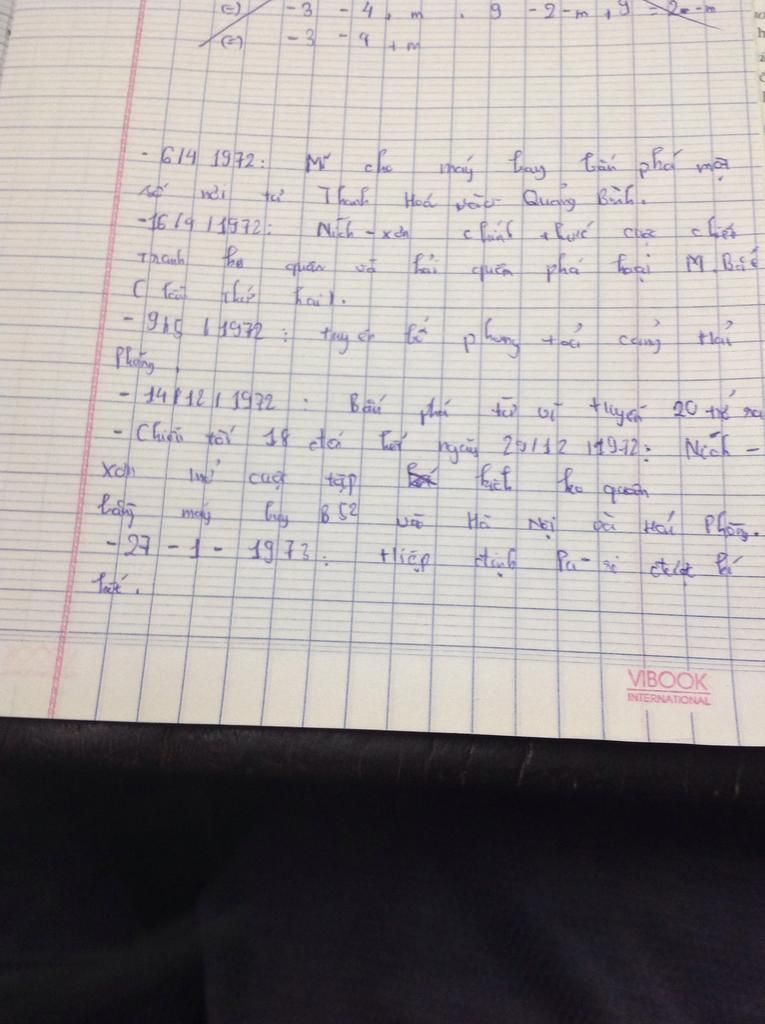 (=) -3 - 4 + m . 9 - 2 - m + 9 = 2 - m
(=) -3 - 9 + m
- 6/4 1972: Mĩ cho máy bay bắn phá một
số nơi từ Thanh Hoá vào Quảng Bình.
- 16/4/1972: Ních-xơn chính thức cuộc chiến
tranh ko quân và hải quân phá hoại M.Bắc
(lần thứ hai).
- 9/5/1972: tuyên bố phong toả cảng Hải
Phòng.
- 14/12/1972: Bắn phá từ vĩ tuyến 20 trở ra
- Chiều tối 18 đến hết ngày 29/12/1972: Ních-
xơn mở cuộc tập kích ko quân
bằng máy bay B52 vào Hà Nội và Hải Phòng.
- 27 - 1 - 1973: Hiệp định Pa-ri được kí
kết.
VIBOOK
INTERNATIONAL